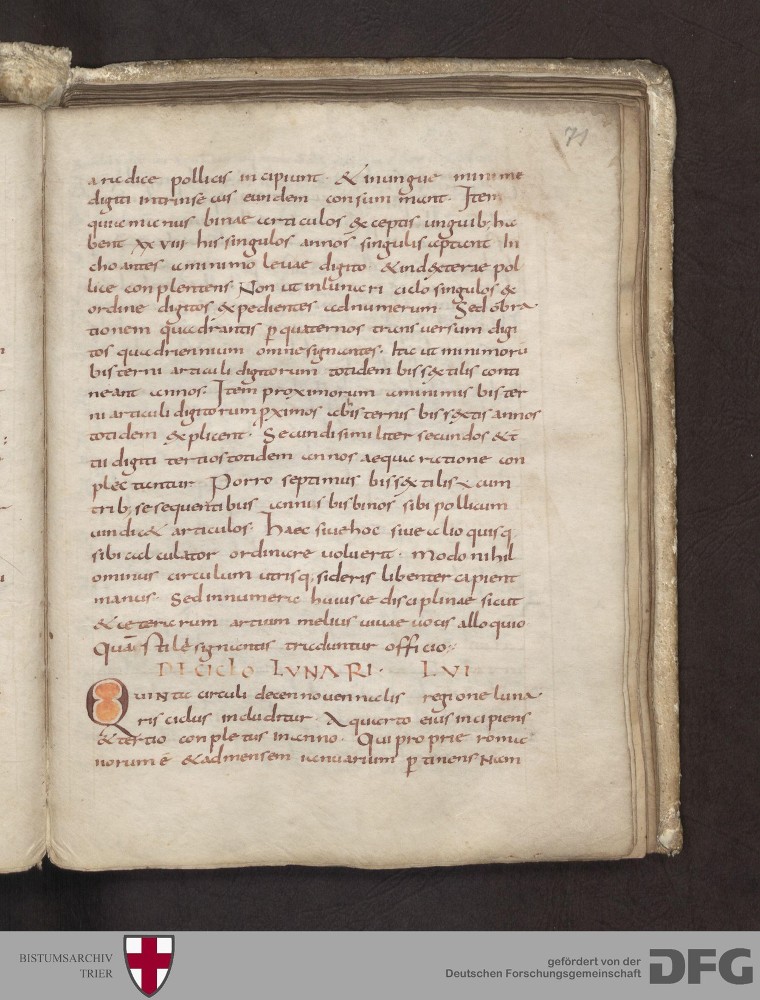 71
a radice pollicis incipiunt · & inungue minime
digiti intrinsecus eundem consummant · Item
quia manus binae articulos exceptis unguib; ha
bent xx viii his singulos annos singulis aptant In
choantes a minimo levae digito & in dexterae pol
lice conplentens · Non ut in lunari ciclo singulos ex
ordine digitos expedientes ad numerum · Sed ob ra
tionem quadrantis p quaternos transversum digi
tos quadriennium omne signantes · hac ut minimorum
bis terni articuli digitorum totidem bissextilis conti
neant annos · Item proximorum a minimis bis ter
ni articuli digitorum pximos a bis ternis bissextis annos
totidem explicent · Secundi similiter secundos & t
tii digiti tertios totidem annos aequa ratione con
plectuntur Porro septimus bissextilis cum
trib; se sequentibus annis bis binos sibi pollicum
vindic& articulos · haec sive hoc sive alio quisq
sibi calculator ordinare voluerit · modo nihil
ominus circulum utriusq; sideris libenter capient
manus · Sed innumera huiusce disciplinae sicut
& ceterarum artium melius vivae vocis alloquio
Quam stili signantis traduntur officio ·
DE CICLO LUNARI · LVI
QUINTA circuli decennovennalis regione luna
ris ciclus includitur · A quarto eius incipiens
& tertio conpletus in anno · Qui proprie roma
norum ē & ad mensem ianuarium p tinens Nam
BISTUMSARCHIV
TRIER
gefördert von der
Deutschen Forschungsgemeinschaft
DFG